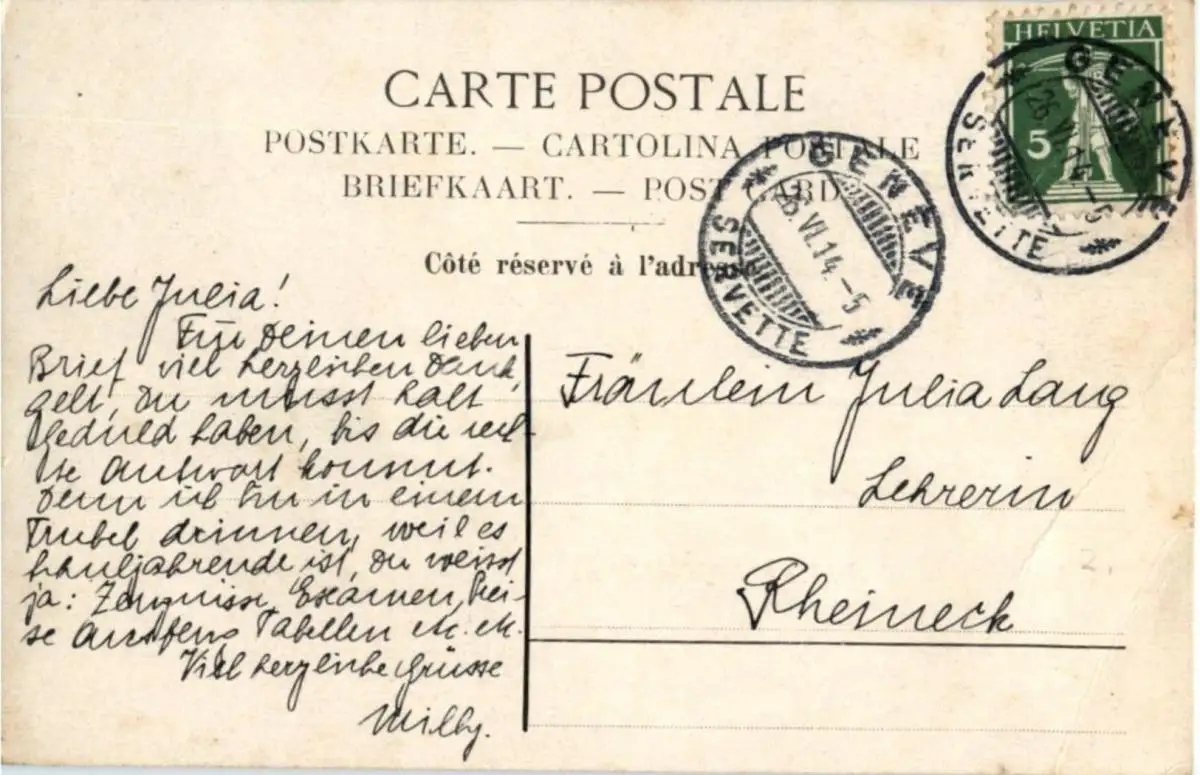 CARTE POSTALE
POSTKARTE. — CARTOLINA POSTALE
BRIEFKAART. — POST CARD
Côté réservé à l'adresse
HELVETIA
5
GENÈVE
SERVETTE
26.VI.14.-5
GENÈVE
SERVETTE
26.VI.14.-5
Liebe Julia!
Für Deinen lieben
Brief viel herzlichen Dank,
gelt, Du musst halt
Geduld haben, bis die
te Antwort kommt.
Denn ich bin in einem
Trubel drinnen, weil es
Schuljahrende ist, Du weisst
ja: Zeugnisse, Examen, Prei-
se Tabellen etc. etc.
Viel herzliche Grüsse
Willy.
Fräulein Julia Lang
Lehrerin
Rheineck
2.